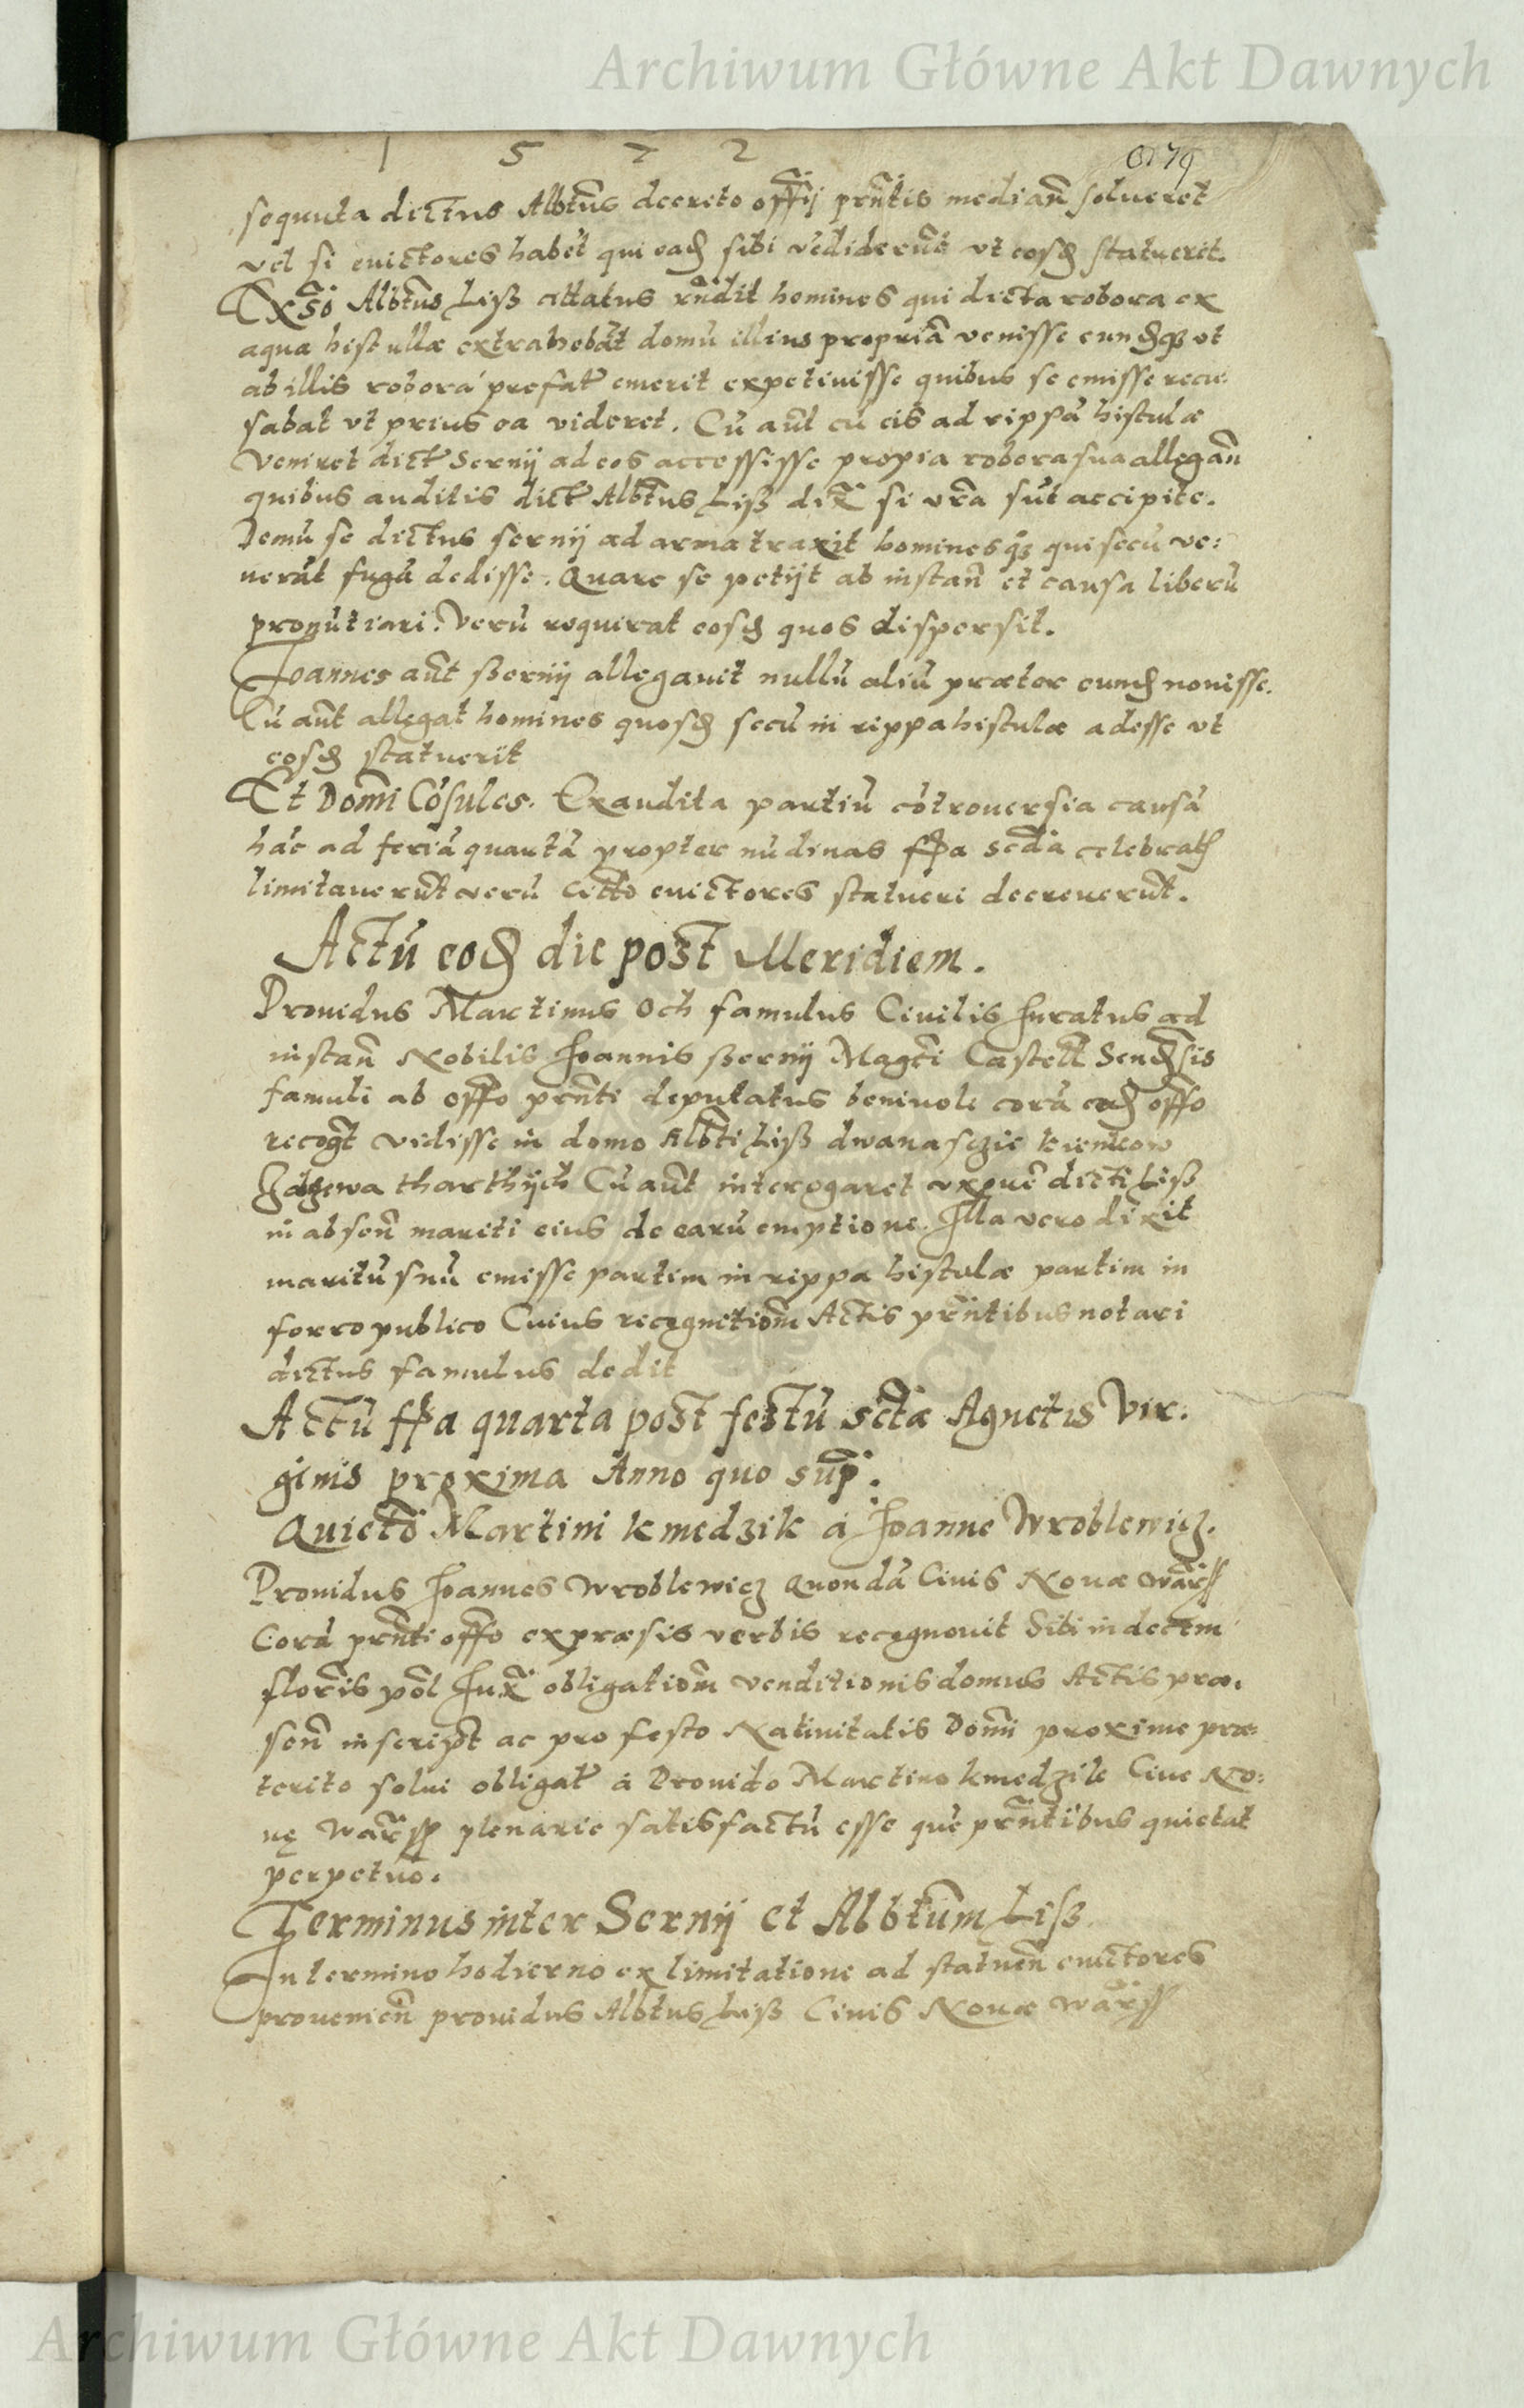 Archiwum Główne Akt Dawnych
1 5 7 2
sequuta dictus Albtus decreto offij prntis median solueret
vel si euictores habet qui ead sibi vediderut vt eosd statuerit.
Albtus Liß cittatus rndit homines qui dicta robora ex
aqua histullæ extrahebat domu illius propria venisse eundqz vt
ab illis robora prefat emerit expetiuisse quibus se emisse recu:
sabat vt prius ea videret. Cu aut cu eis ad rippa histulæ
veniret dict Sernij ad eos accessisse propia robora sua allegan
quibus auditis dict Albtus Liß dix si vra sut accipite.
Demu se dictus sernij ad arma traxit homines qz qui secu ve:
nerut fuga dedisse. Quare se petijt ab instan et causa liberu
pronutiari. Veru requirat eosd quos dispersit.
Joannes aut ßernij allegauit nullu aliu præter eumd nouisse.
Cu aut allegat homines quosd secu in rippa histulæ adesse vt
eosd statuerit
Et Domi Cosules. Exaudita partiu cotrouersia causa
hac ad feria quarta propter nudinas fa scda celebrat
limitauerut veru citto euictores statueri decreuerut.
Actu eod die post Meridiem.
Prouidus Martinus Och famulus Ciuilis Juratus ad
instan Nobilis Joannis ßernij Magci Castell Sendsis
famuli ab offo prnti deputatus beniuole cora eod offo
recogt vidisse in domo Albti Liß dwanasczie
tharthych Cu aut interogaret vxore dicti Liß
in absen mariti eius de earu emptione. Illa vero dixit
maritu suu emisse partim in rippa histulæ partim in
forro publico Cuius recognitiom Actis prntibus notari
dictus famulus dedit
Actu fa quarta post festu sctæ Agnetis Vir:
ginis proxima Anno quo sup.
Quieto Martini kmedzik á Joanne Wroblewicz.
Prouidus Joannes Wroblewicz Quonda Ciuis Nouæ Warß
Cora prnti offo expræsis verbis recognouit Sibi in decem
floris pol Jux obligatiom venditionis domus Actis præ.
sen inscript ac pro festo Natiuitatis Domi proxime præ:
terito solui obligat á Prouido Martino kmedzik Ciue No:
uę Warß plenarie satisfactu esse que prntibus quietat
perpetuo.
Terminus inter Sernij et Albtum Liß.
In termino hodierno ex limitatione ad statuen euictores
prouenien prouidus Albtus Liß Ciuis Nouæ Warß
Archiwum Główne Akt Dawnych